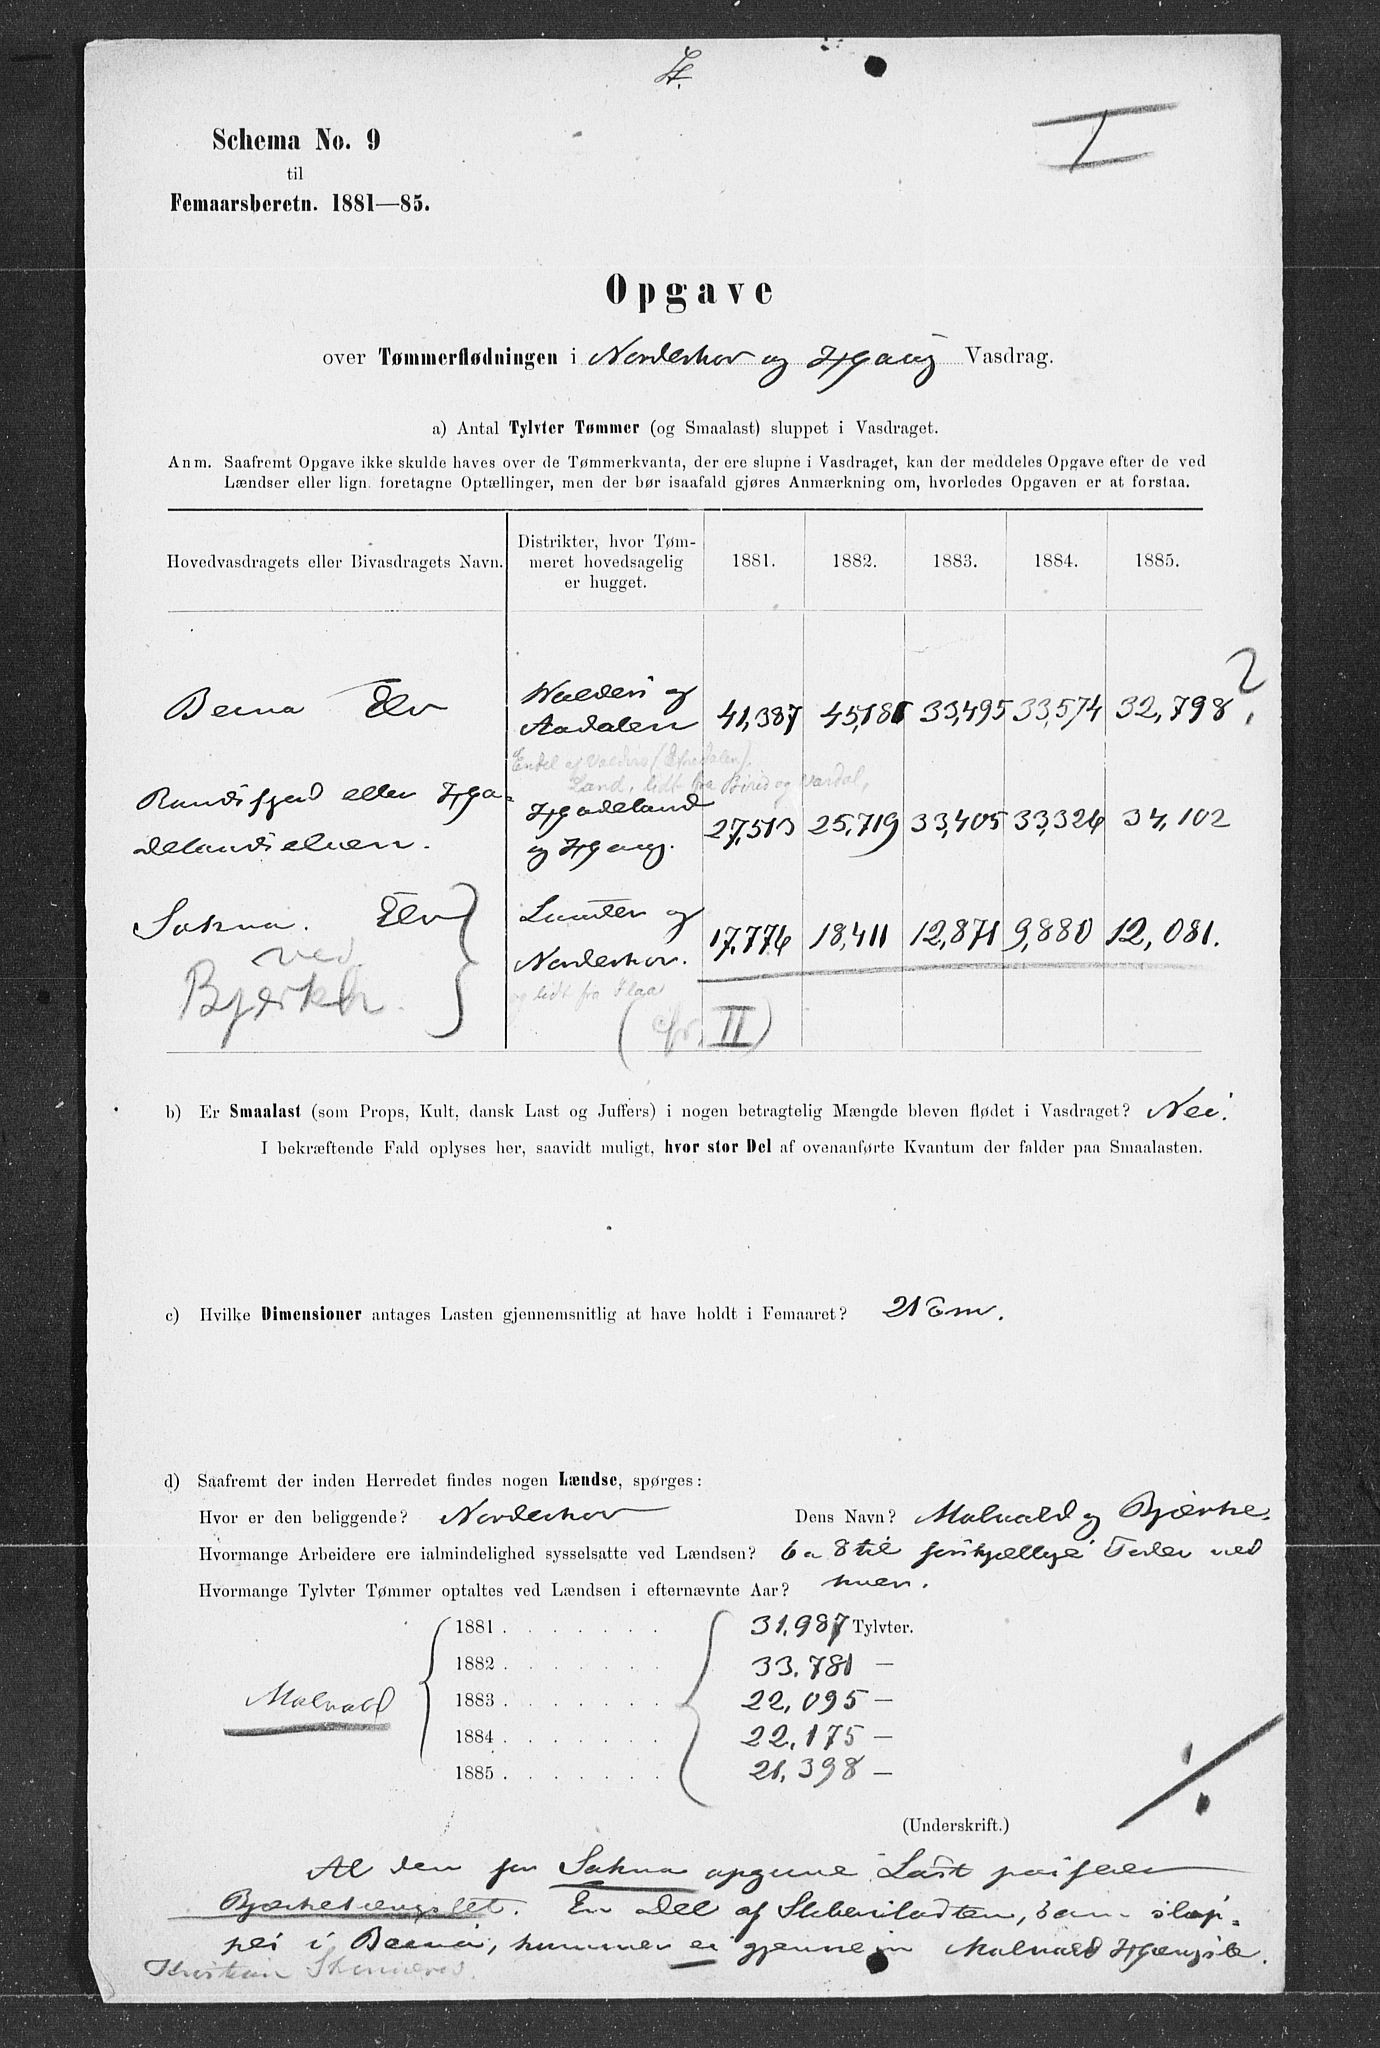 I
Schema No. 9
til
Femaarsberetn. 1881—85.
Opgave
over Tømmerflødningen i Norderhov og Hjaug Vasdrag.
a) Antal Tylvter Tømmer (og Smaalast) sluppet i Vasdraget.
Anm. Saafremt Opgave ikke skulde haves over de Tømmerkvanta, der ere slupne i Vasdraget, kan der meddeles Opgave efter de ved
Lændser eller lign. foretagne Optællinger, men der bør isaafald gjøres Anmærkning om, hvorledes Opgaven er at forstaa.
Hovedvasdragets eller Bivasdragets Navn. Distrikter, hvor Tøm-
meret hovedsagelig
er hugget. 1881. 1882. 1883. 1884. 1885.
Beina Elv Valders og
Aadalen 41,387 45,181 33,495 33,574 32,798 ?
Endel af Valdres (Etnedalen),
Land, lidt fra Birid og Vardal,
Randsfjord eller Ha-
delandselven. Hadeland
og 27,513 25,719 33,405 33,326 34,102
Sokna. Elv
ved
Bjerke. Lunder og
Norderhov. 17,776 18,411 12,871 9,880 12,081.
og lidt fra Flaa
(cfr. II)
b) Er Smaalast (som Props, Kult, dansk Last og Juffers) i nogen betragtelig Mængde bleven flødet i Vasdraget? Nei.
I bekræftende Fald oplyses her, saavidt muligt, hvor stor Del af ovenanførte Kvantum der falder paa Smaalasten.
c) Hvilke Dimensioner antages Lasten gjennemsnitlig at have holdt i Femaaret? 21 Cm.
d) Saafremt der inden Herredet findes nogen Lændse, spørges:
Hvor er den beliggende? Norderhov Dens Navn? Molvald og Bjerke.
Hvormange Arbeidere ere ialmindelighed sysselsatte ved Lændsen? 6 a 8 til forskjellige Tider ved
hver.
Hvormange Tylvter Tømmer optaltes ved Lændsen i efternævnte Aar?
Molvald
1881 . . . . . . . 31.987 Tylvter.
1882 . . . . . . . 33.781 —
1883 . . . . . . . 22,095 —
1884 . . . . . . . 22,175 —
1885 . . . . . . . 21,398 —
(Underskrift.)
Al den for Sokna opgivne Last passerer
Bjerkehængslet. En Del af Sliberilasten, som slip-
pes i Beina, kommer ei gjennem Molvald Hængsle.